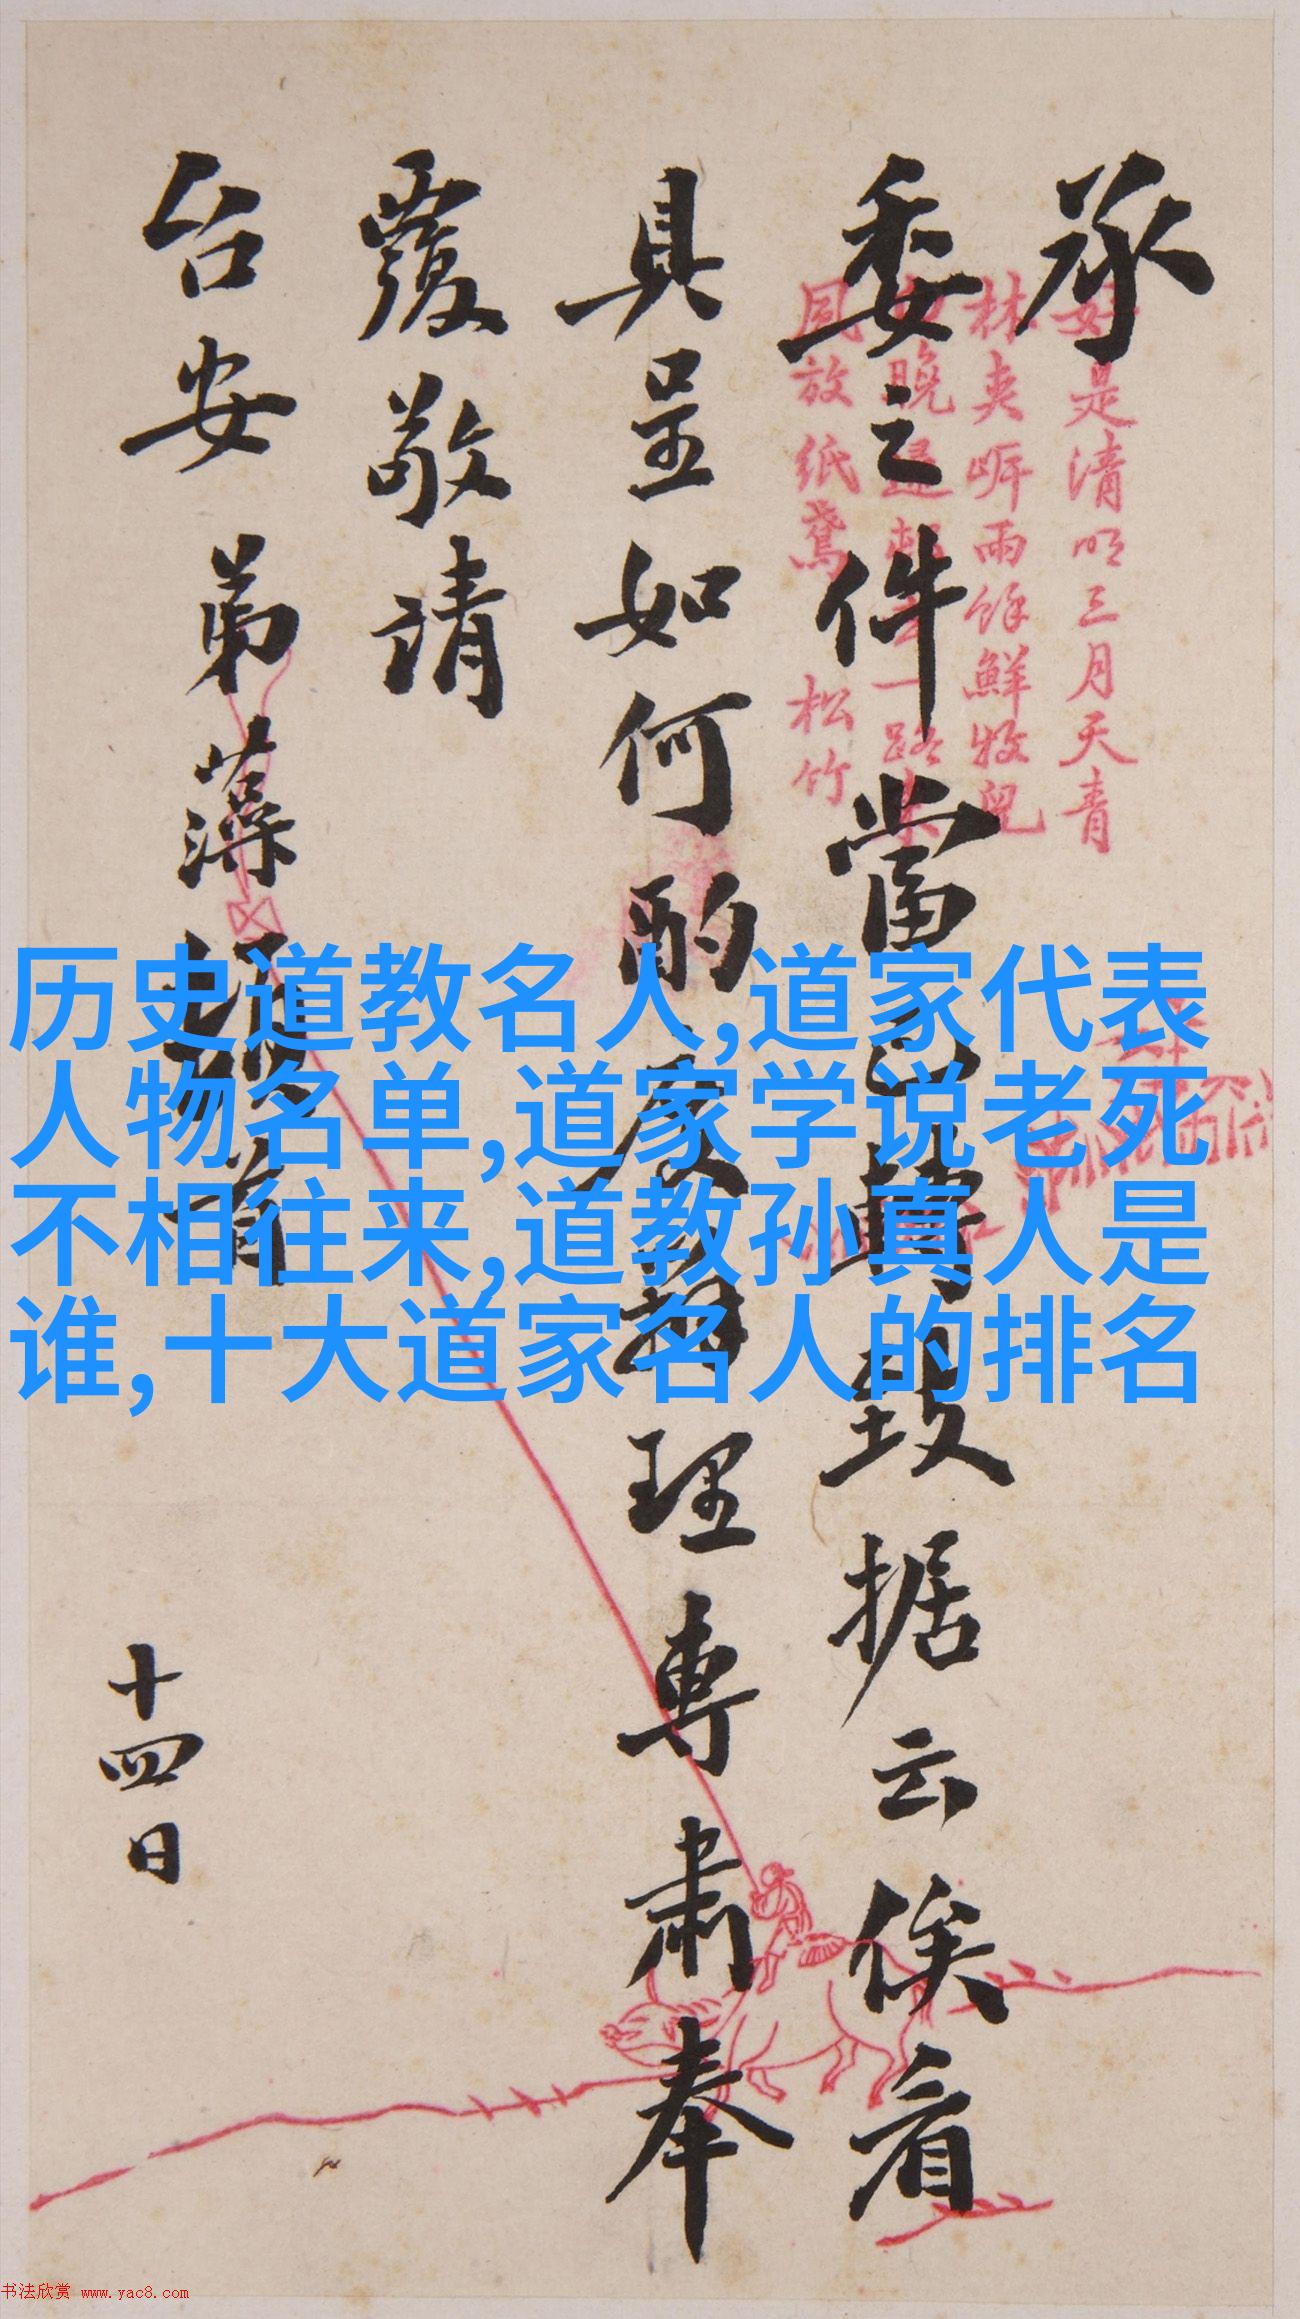 承
委之件當已轉致據云俟看
具呈如何酌度辦理專肅奉
覆敬请
台安 弟藻頓首
十四日
是清明三月天青
林夾岍雨餘鮮牧兒
晚
放纸鳶 松竹
历史道教名人,道家代表
人物名单,道家学说老死
不相往来,道教孙真人是
谁,十大道家名人的排名
书法欣赏 www.yac8.com